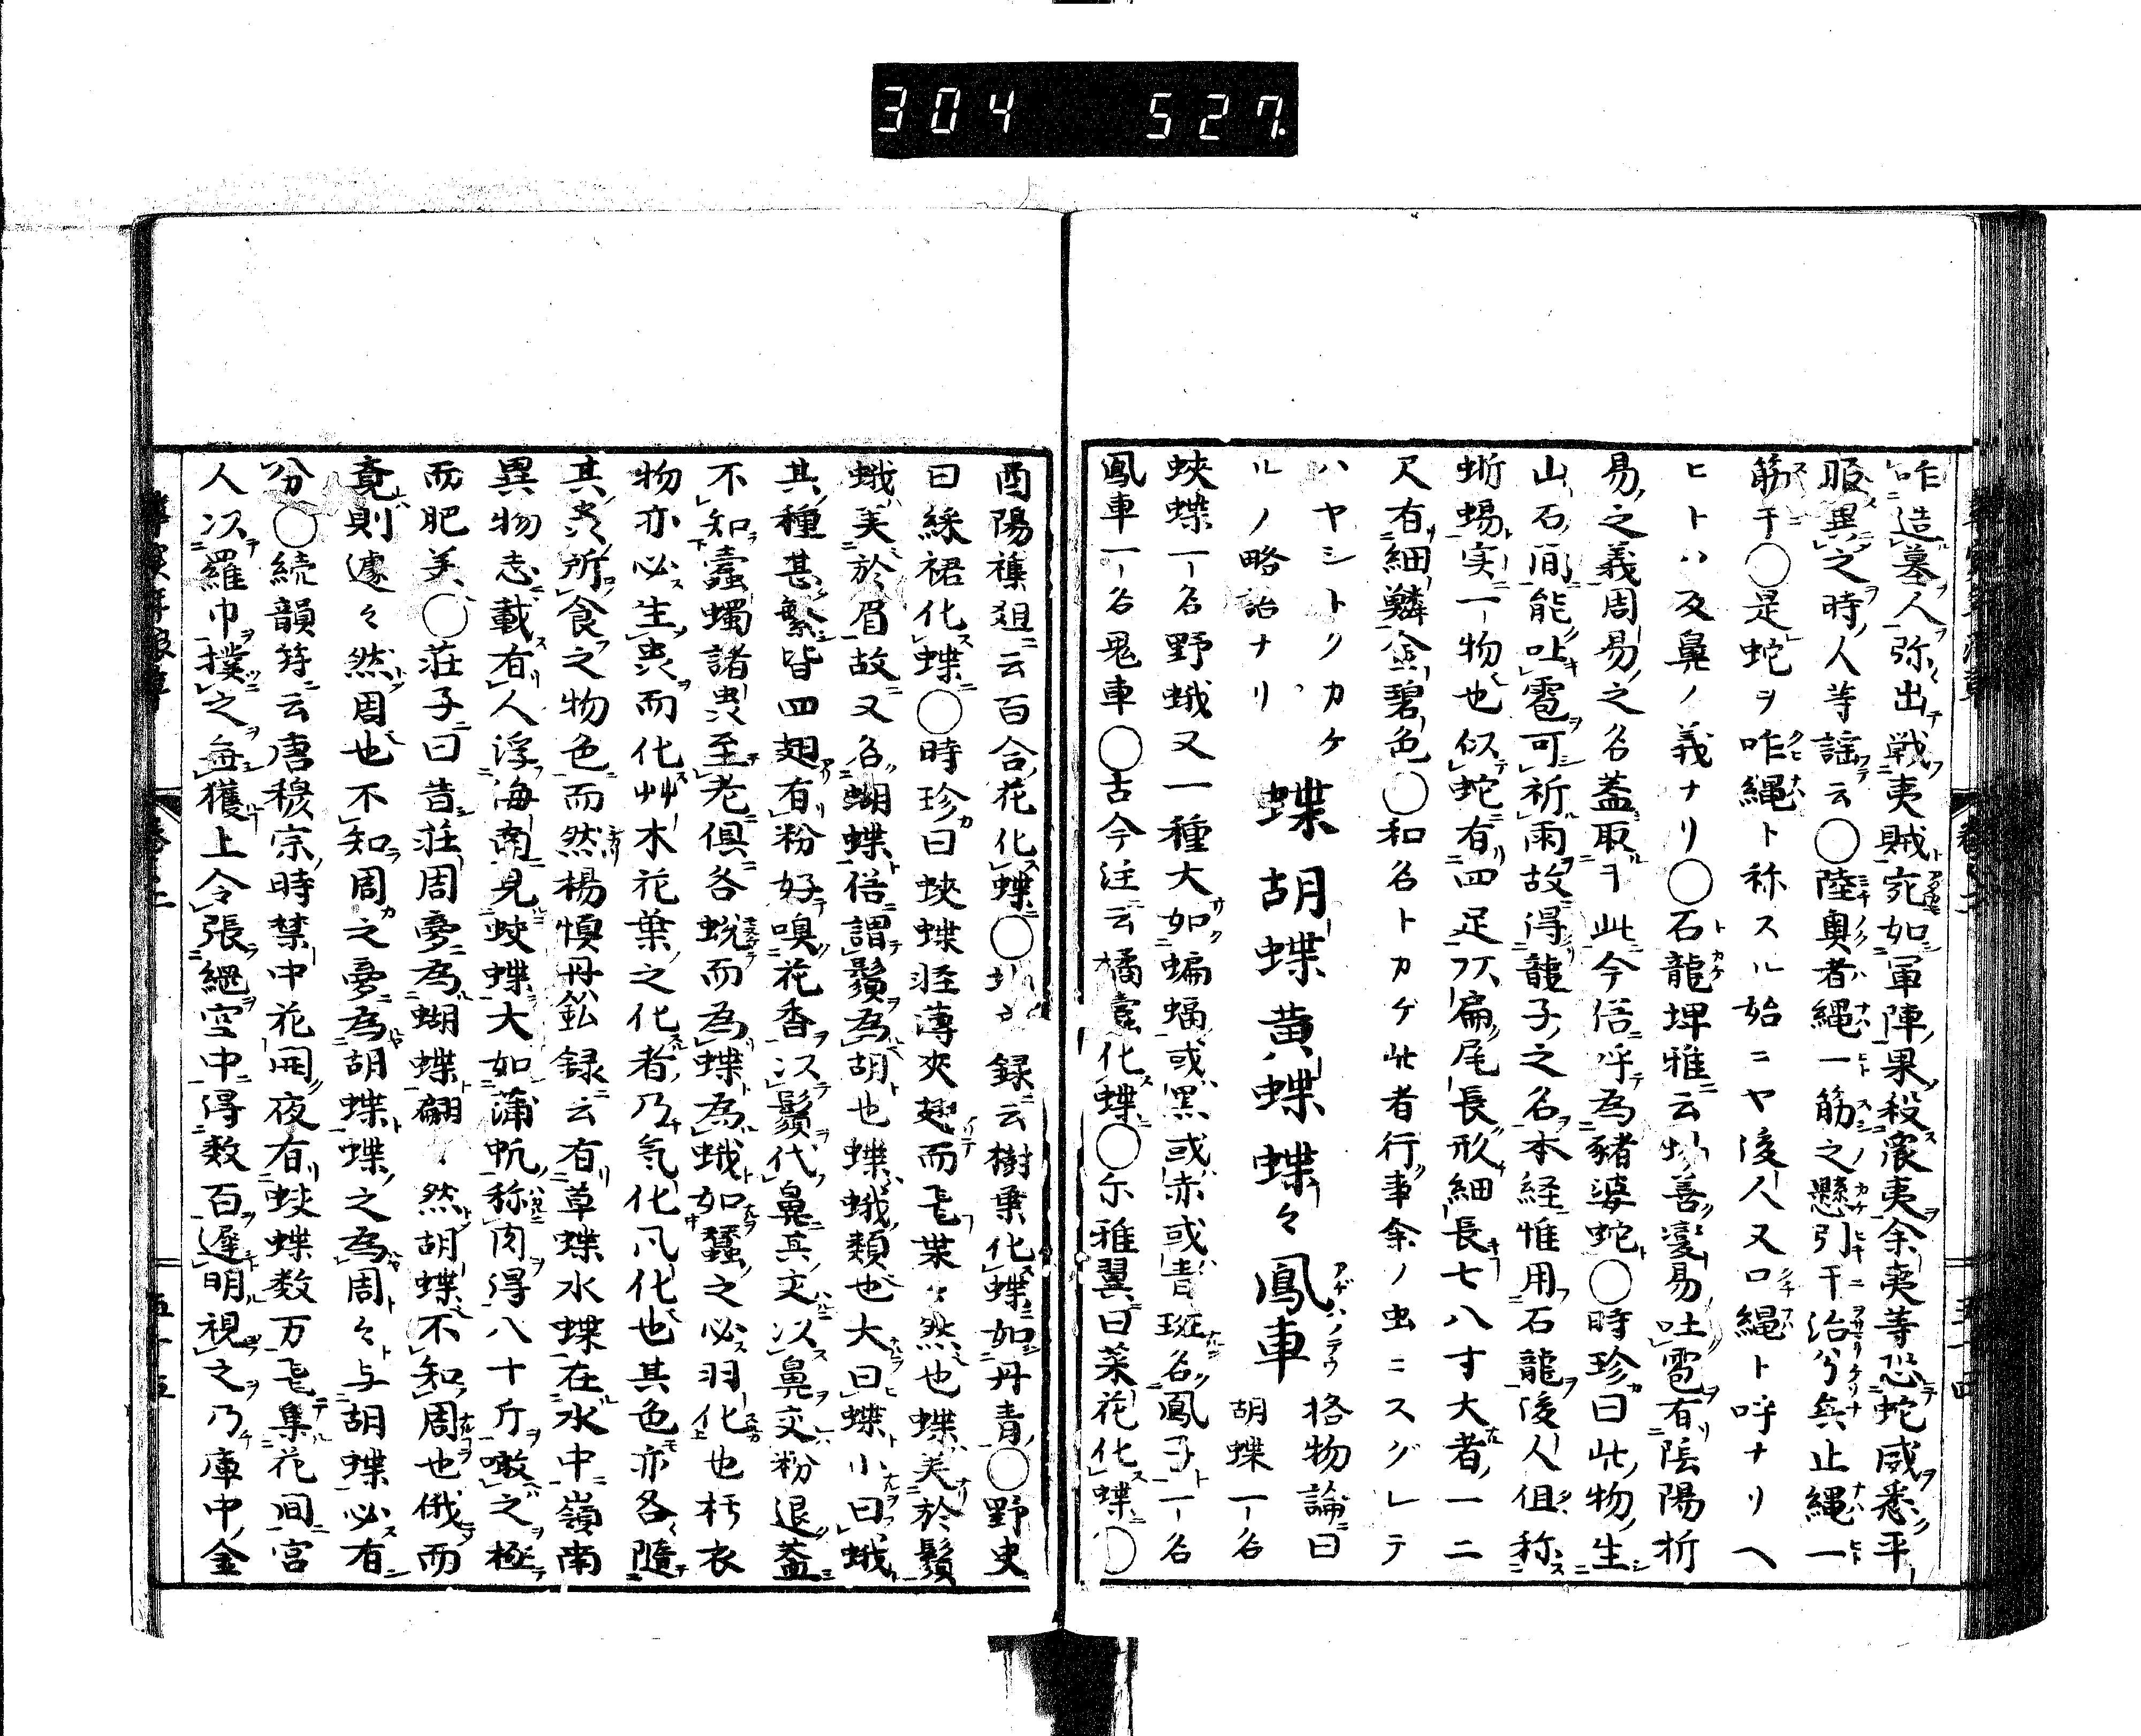 304 527
咋造墓人弥出戦夷賊宛如軍陣果殺衆夷余夷等恐蛇威悉平
服異之時人等謡云〇陸奥者縄一筋之懸引干治兮兵止縄一
筋干〇是蛇ヲ咋縄ト称スル始ニヤ後人又口縄ト呼ナリヘ
ヒトハ反鼻ノ義ナリ〇石龍埤雅云蜴善變易吐雹有陰陽析
易之義周易之名蓋取ヲ此今俗呼為豬婆蛇〇時珍曰此物生
山石间能吐雹可祈雨故得龍子之名本経惟用石龍後人但称
蜥蜴実一物也似蛇有四足頭扁尾長形細長七八寸大者一二
尺有細鱗金碧色〇和名トカゲ此者行事余ノ虫ニスグレテ
ハヤシトリカケ
ルノ略語ナリ
蝶 胡蝶 黄蝶 蝶々 鳳車
アゲハノテウ
格物論曰
胡蝶一名
蛺蝶一名野蛾又一種大如蝙蝠或黒或赤或青斑名鳳子一名
鳳車一名鬼車〇古今注云橘蠹化蝶〇尓雅翼曰菜花化蝶〇
酉陽襍爼云百合花化蝶〇 録云樹葉化蝶如丹青〇野史
曰綵裙化蝶〇時珍曰蛺蝶軽薄夾翅而飛葉々然也蝶美於鬚
蛾美於眉故又名蝴蝶俗謂鬚為胡也蝶蛾類也大曰蝶小曰蛾
其種甚繁皆四翅有粉好嗅花香以鬚代鼻其交以鼻交粉退蓋
不知蠹蠋諸蟲至老俱各蛻而為蝶為蛾如蠶之必羽化也朽衣
物亦必生蟲而化艸木花葉之化者乃気化凡化也其色亦各隨
其蟲所食之物色而然楊慎丹鈆録云有草蝶水蝶在水中嶺南
異物志載有人浮海南見蛺蝶大如蒲帆称肉得八十斤噉之極
而肥美〇荘子曰昔荘周夢為蝴蝶翩々然胡蝶不知周也俄而
覚則遽々然周也不知周之夢為胡蝶蝶之為周々与胡蝶必有
分〇続韻府云唐穆宗時禁中花開夜有蛺蝶数万飛集花间宮
人以羅巾撲之無獲上令張網空中得数百遅明視之乃庫中金
五十五